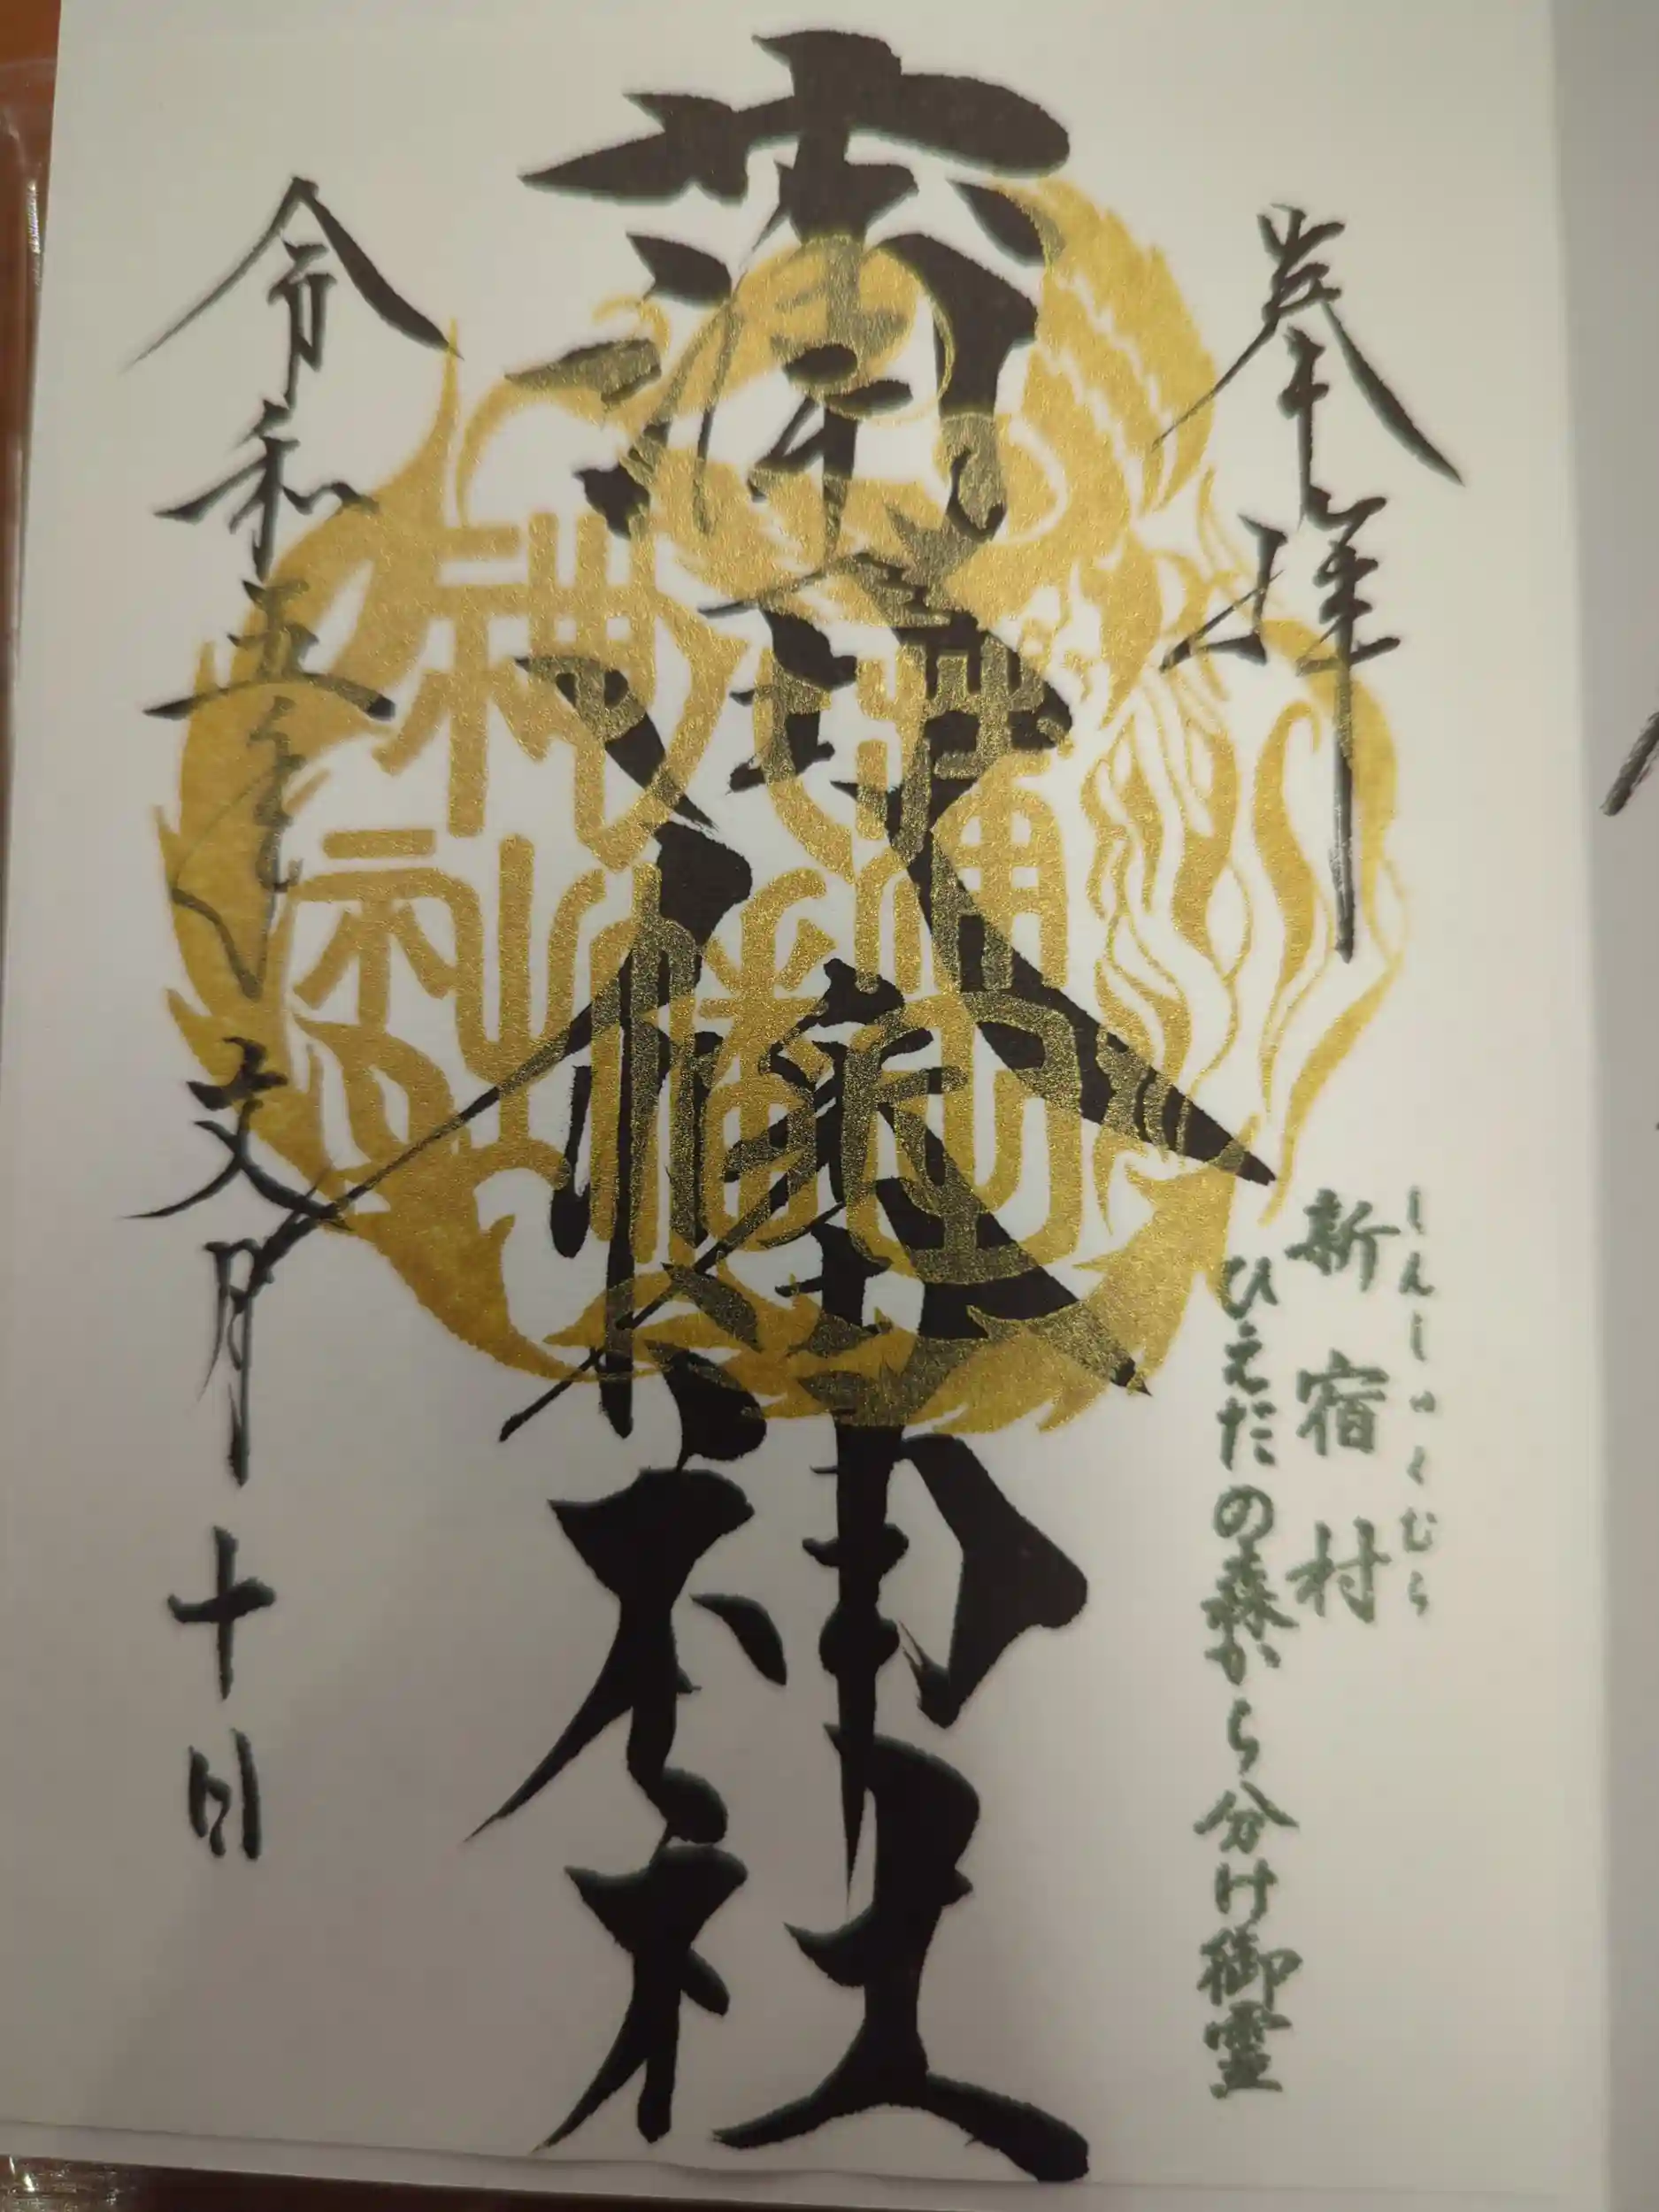 奉拝
しんしゅくむら
新宿村
ひえだの森から分け御霊
蒲田八幡神社
令和五年文月十日